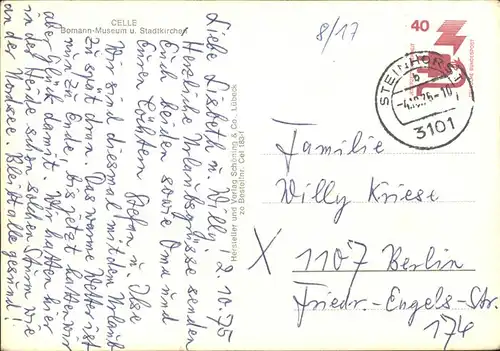 CELLE
Bomann-Museum u. Stadtkirche
Hersteller und Verlag Schöning & Co., Lübeck
zo Bestellnr. Cel 183/1
8/17
40
DEUTSCHE BUNDESPOST
STEINHORST
b
-4.10.75-10
3101
2.10.75
Liebe Lisbeth u. Willy!
Herzliche Urlaubsgrüsse senden
Euch beiden sowie Oma und
Euren Töchtern Stefan u. Ilse
Wir sind diesmal mit dem Urlaub
zu spät dran. Das warme Wetter ist
nun zu Ende, bis jetzt hatten wir
aber Glück damit. Wir hatten hier
in der Heide schon solchen Sturm wie
an der Nordsee. Bleibt alle gesund!
Familie
Willy Kriese
X 1107 Berlin
Friedr.-Engels-Str.
174